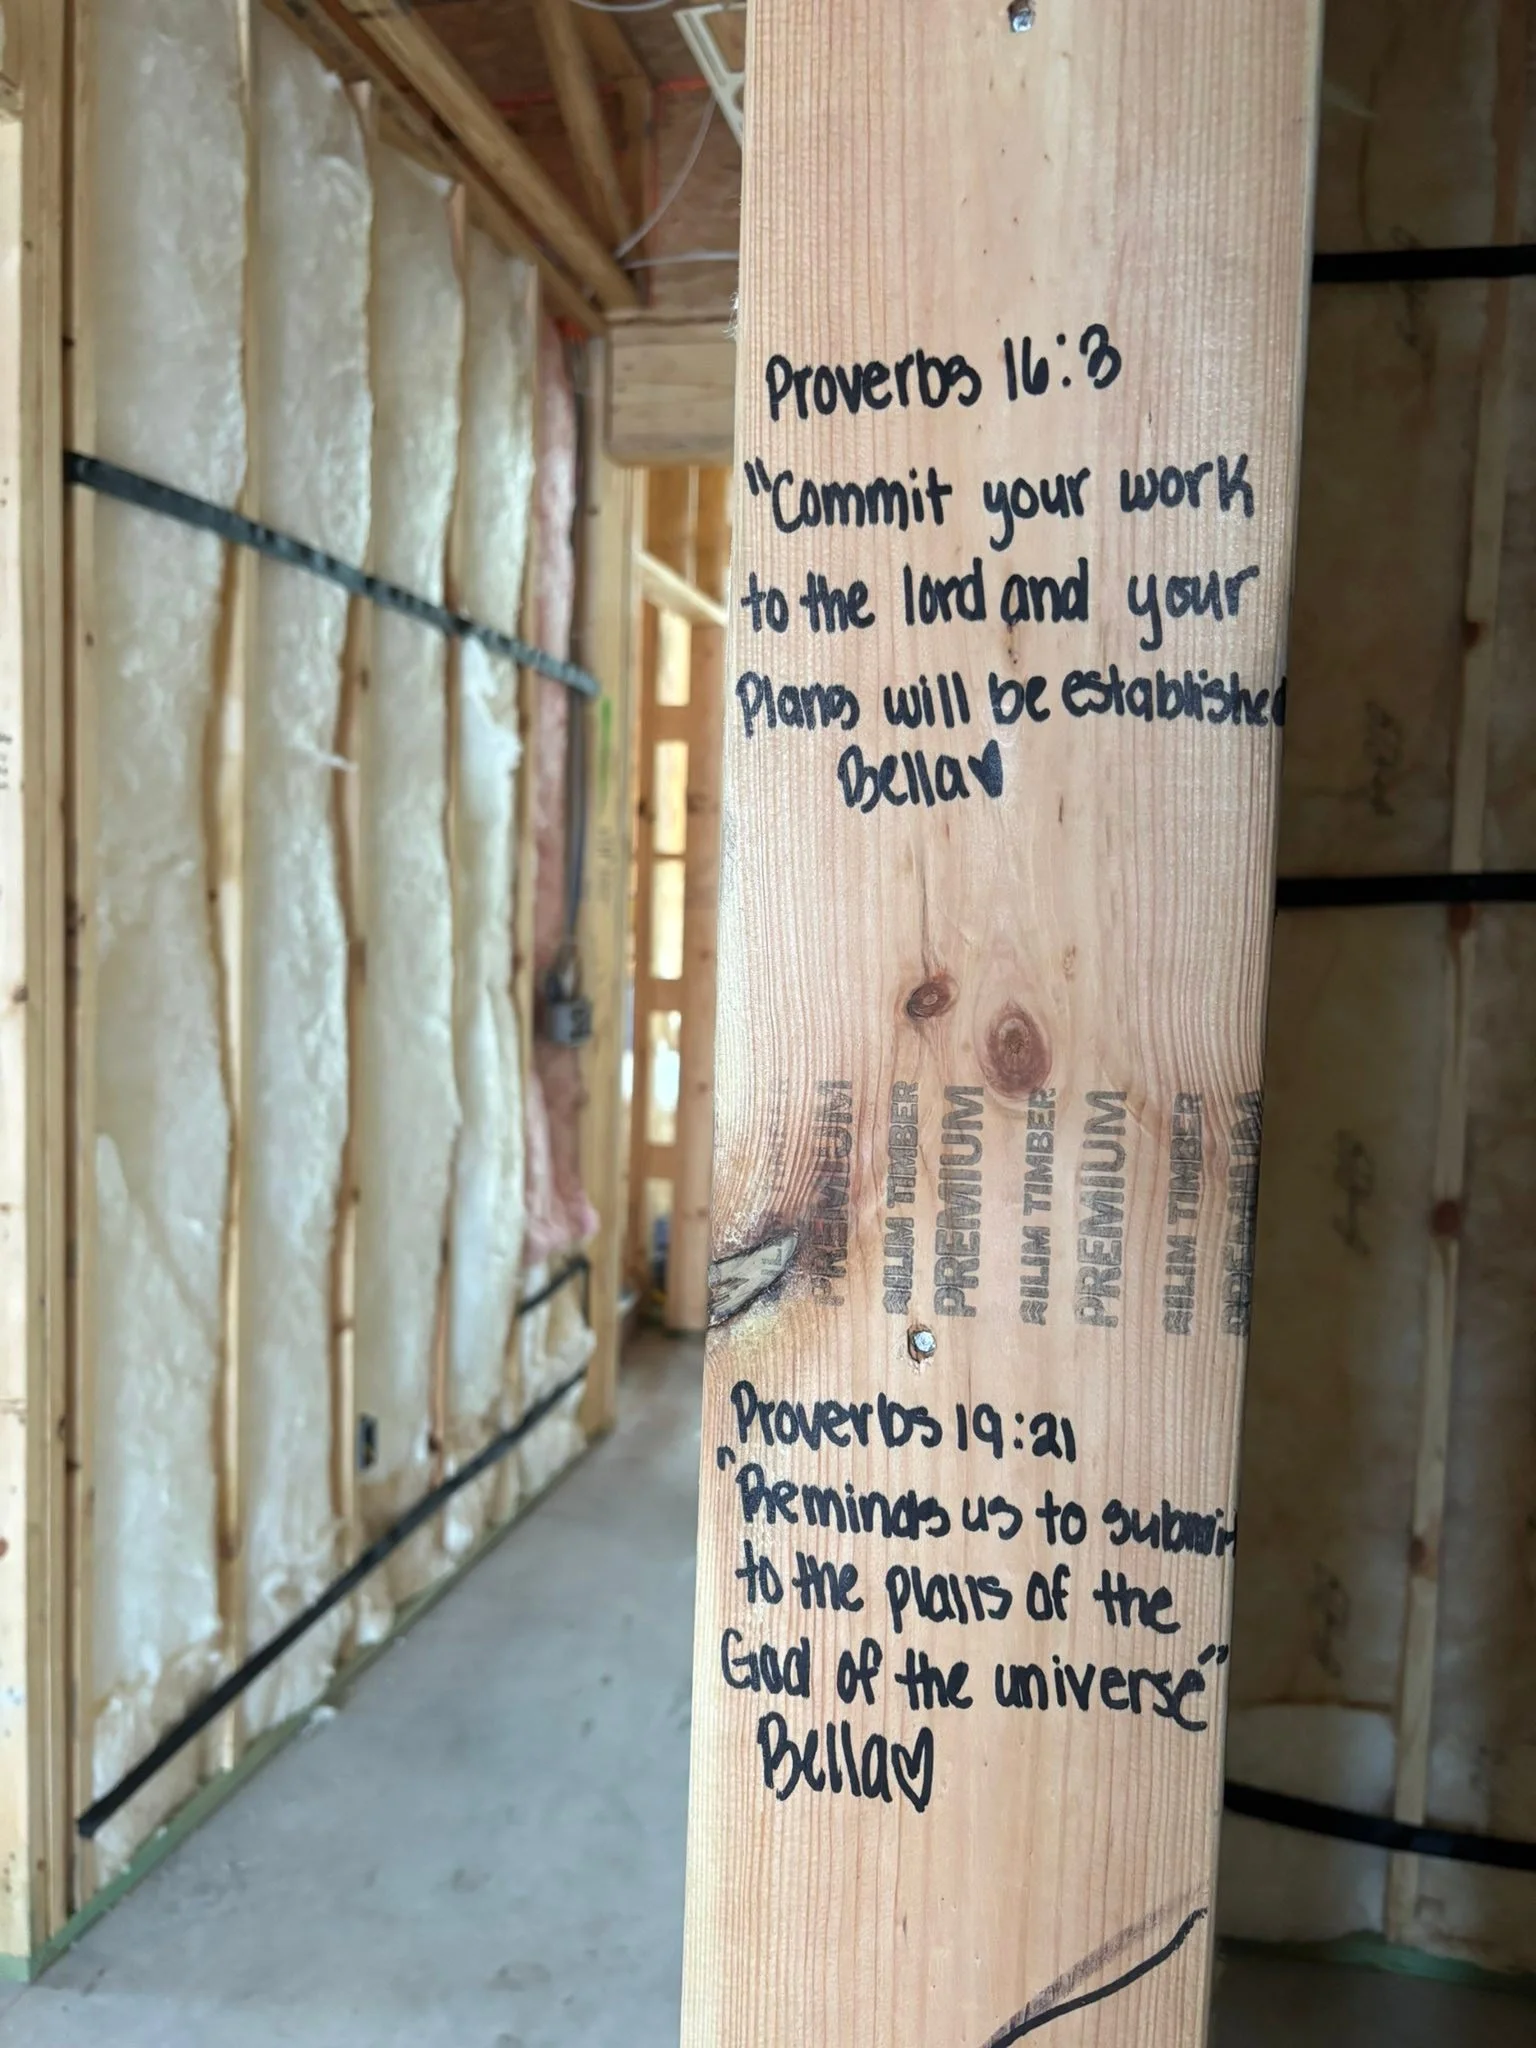 Proverbs 16:3
"Commit your work
to the lord and your
Plans will be established
Bella
PREMIUM
SILIM TIMBER
PREMIUM
SILIM TIMBER
PREMIUM
SILIM TIMBER
PREMIUM
Proverbs 19:21
"Reminds us to submit
to the plans of the
God of the universe"
Bella